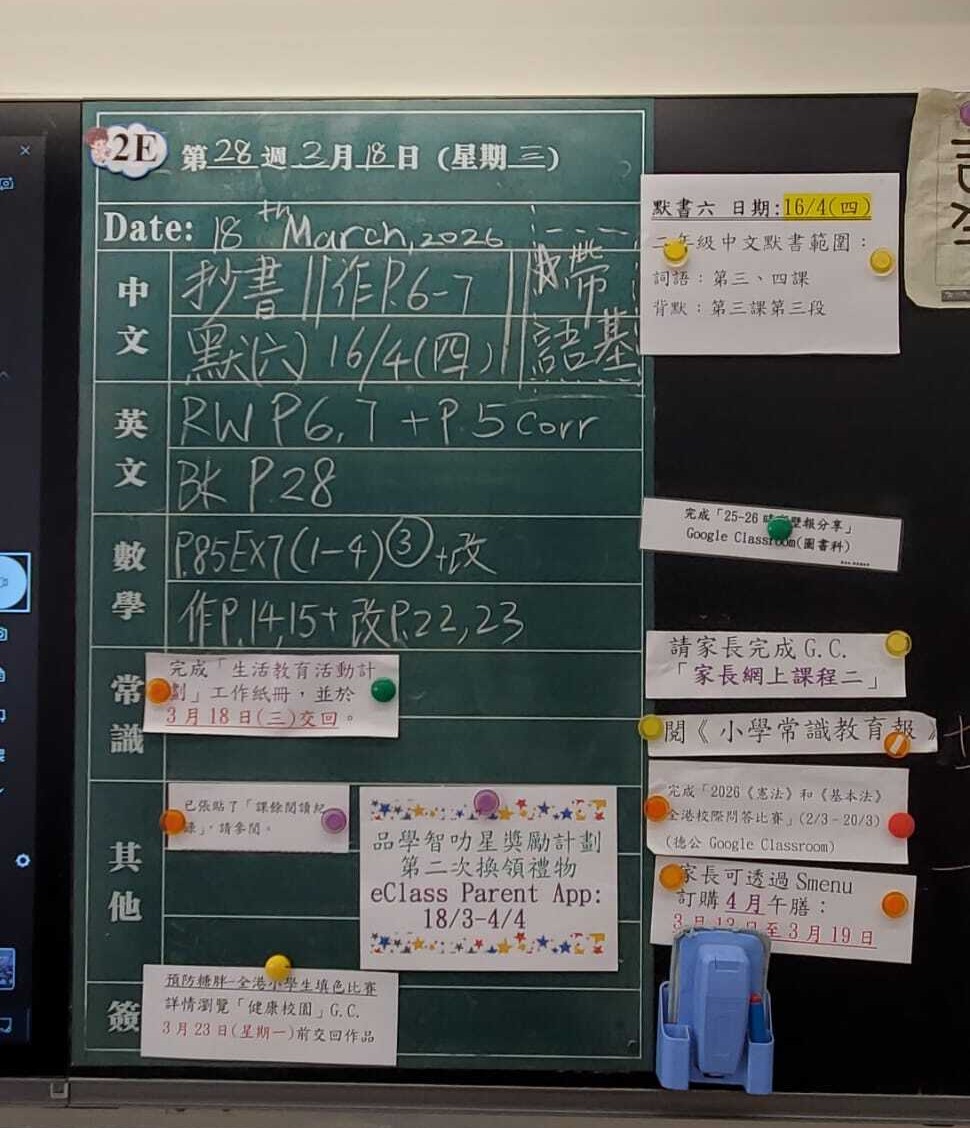 2E 第28週3月18日(星期三)
Date: 18th March, 2026
中文
抄書 || 作P.6-7
帶
默(六) 16/4(四)
語基
英文
RW P6, 7 + P.5 corr
BK P.28
數學
P.85EX7(1-4)③+改
作P.14,15+改P.22,23
常識
完成「生活教育活動計
劃」工作紙冊,並於
3月18日(三)交回。
其他
已張貼了「課餘閱讀紀
錄」,請參閱。
品學智叻星獎勵計劃
第二次換領禮物
eClass Parent App:
18/3-4/4
簽
預防糖胖-全港小學生填色比賽
詳情瀏覽「健康校園」G.C.
3月23日(星期一)前交回作品
默書六 日期:16/4(四)
二年級中文默書範圍:
詞語:第三、四課
背默:第三課第三段
完成「25-26 壁報分享」
Google Classroom(圖書科)
請家長完成G.C.
「家長網上課程二」
閱《小學常識教育報》
完成「2026《憲法》和《基本法》
全港校際問答比賽」(2/3-20/3)
(德公 Google Classroom)
家長可透過 Smenu
訂購4月午膳:
3月13日至3月19日